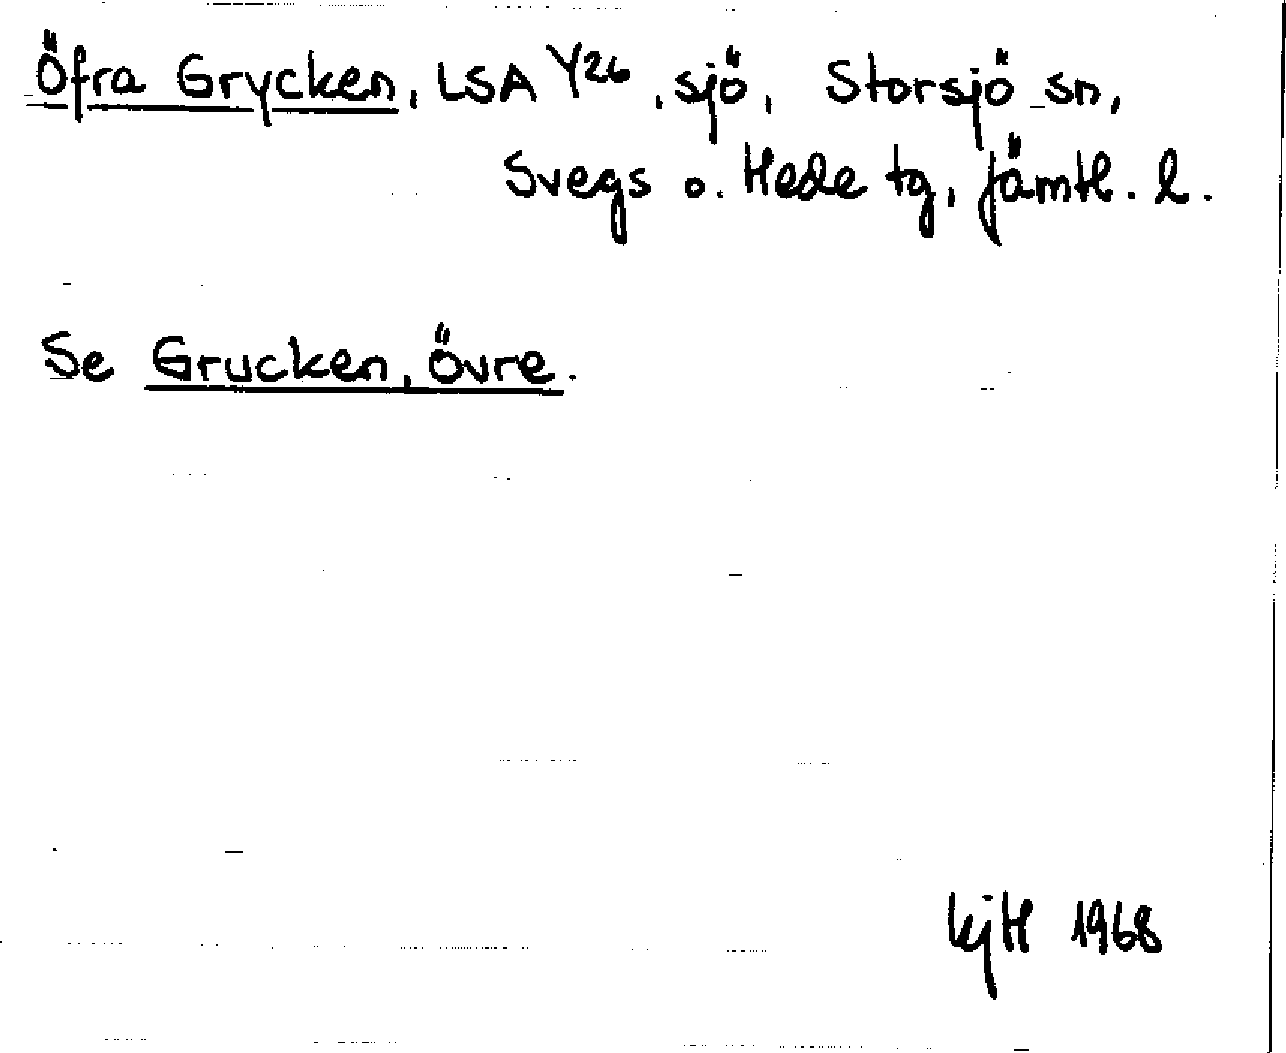 Öfra Grycken, LSA Y26, sjö, Storsjö sn,
Svegs o. Hede tg, Jämtl. l.
Se Grucken, Övre.
KjH 1968